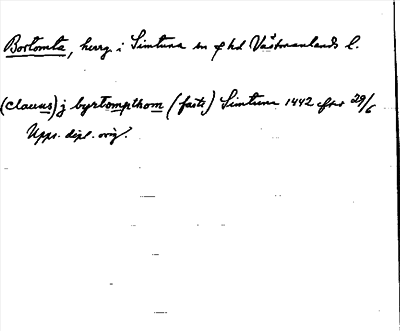 Bortomta, herrg i Simtuna sn f hd Västmanlands l.
(clauus) j byrtompthom (faste) Simtuna 1442 efter 29/6
Upps. dipl. orig.